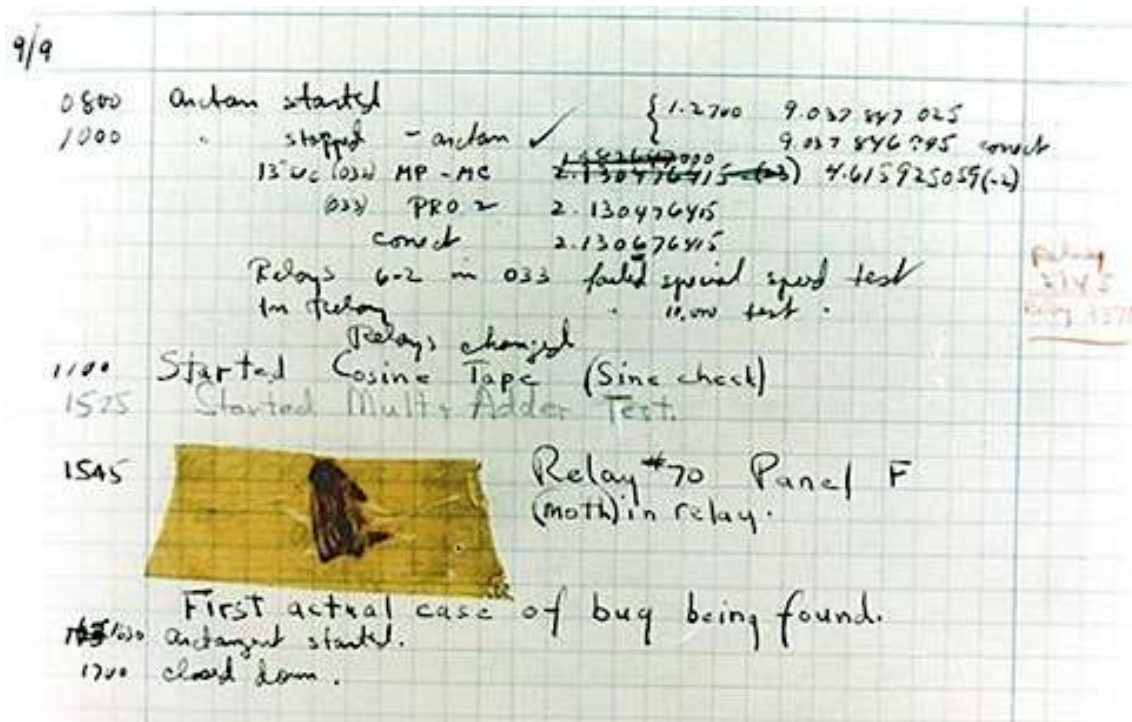 9/9
0800 started { 1.2700 9.037 847 025
1000 " stopped - ✓ 9.037 846 795 correct
(032) MP - MC 2.130476415 4.615925059(-2)
(033) PRO 2 2.130476415
correct 2.130676415
Relays 6-2 in 033 failed special speed test
In Relay " 10,000 test .
Relays changed
1100 Started Cosine Tape (Sine check)
1525 Started Mult + Adder Test.
1545 Relay #70 Panel F
(moth) in relay.
First actual case of bug being found.
1630 started.
1700 closed down.
Relay